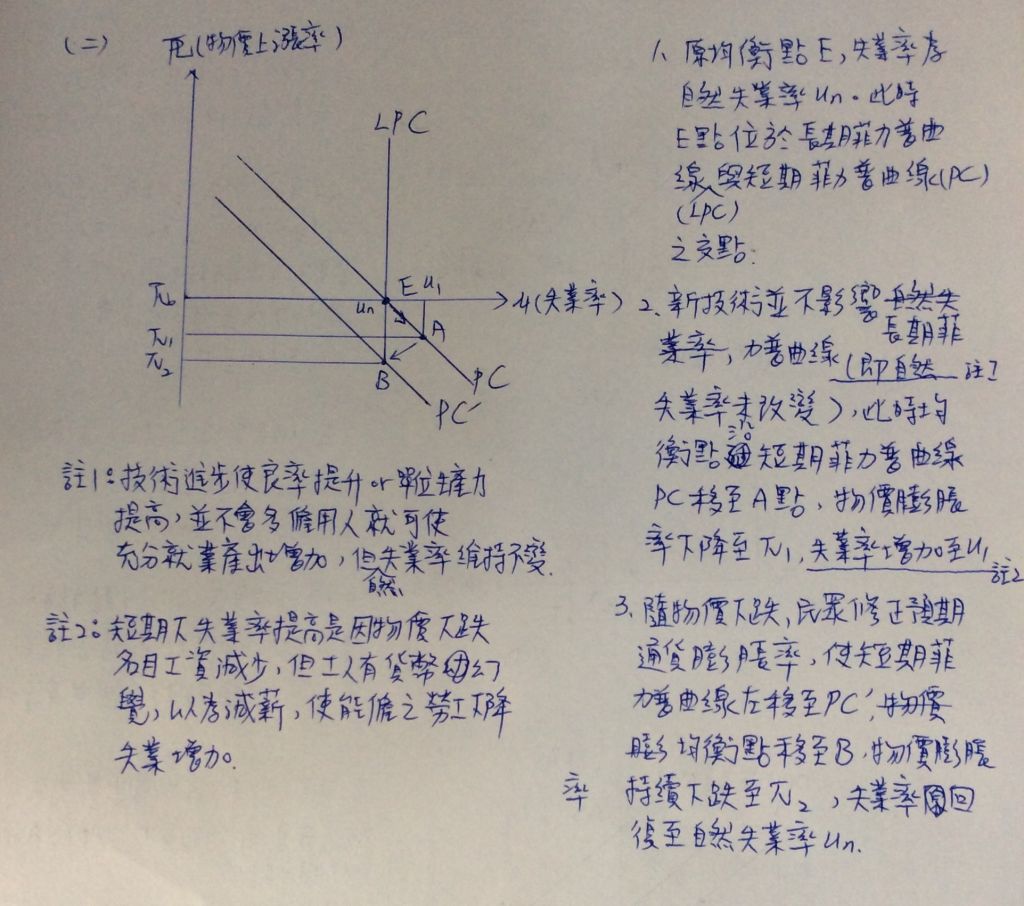 (二)
π(物價上漲率)
LPC
π₀
E
u₁
un
u(失業率)
π₁
A
π₂
B
PC
PC'
註1:技術進步使良率提升or單位生產力
提高,並不會多僱用人就可使
充分就業產出增加,但自然失業率維持不變.
註2:短期下失業率提高是因物價下跌
名目工資減少,但工人有貨幣幻
覺,以為減薪,使能僱之勞工下降
失業增加。
1、原均衡點E,失業率為
自然失業率un。此時
E點位於長期菲力普曲
線(LPC)與短期菲力普曲線(PC)
之交點.
2、新技術並不影響長期菲
力普曲線(即自然 註1
失業率未改變),此時均
衡點沿短期菲力普曲線
PC移至A點,物價膨脹
率下降至π₁,失業率增加至u₁ 註2
3、隨物價下跌,民眾修正預期
通貨膨脹率,使短期菲
力普曲線左移至PC',
均衡點移至B,物價膨脹
率持續下跌至π₂,失業率回
復至自然失業率un.